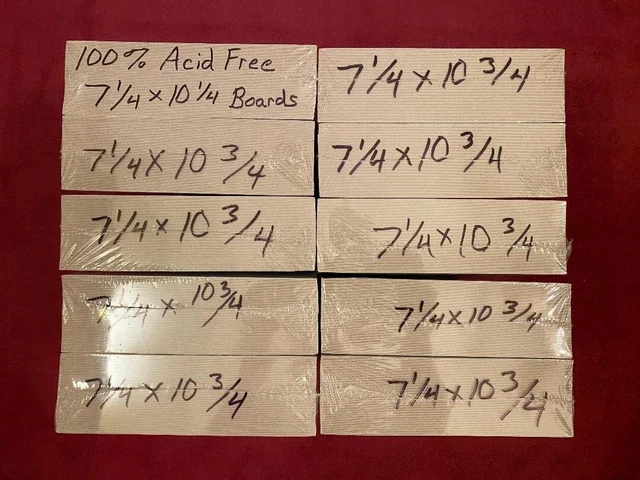 100% Acid Free
7 1/4 x 10 1/4 Boards
7 1/4 x 10 3/4
7 1/4 x 10 3/4
7 1/4 x 10 3/4
7 1/4 x 10 3/4
7 1/4 x 10 3/4
7 1/4 x 10 3/4
7 1/4 x 10 3/4
7 1/4 x 10 3/4
7 1/4 x 10 3/4